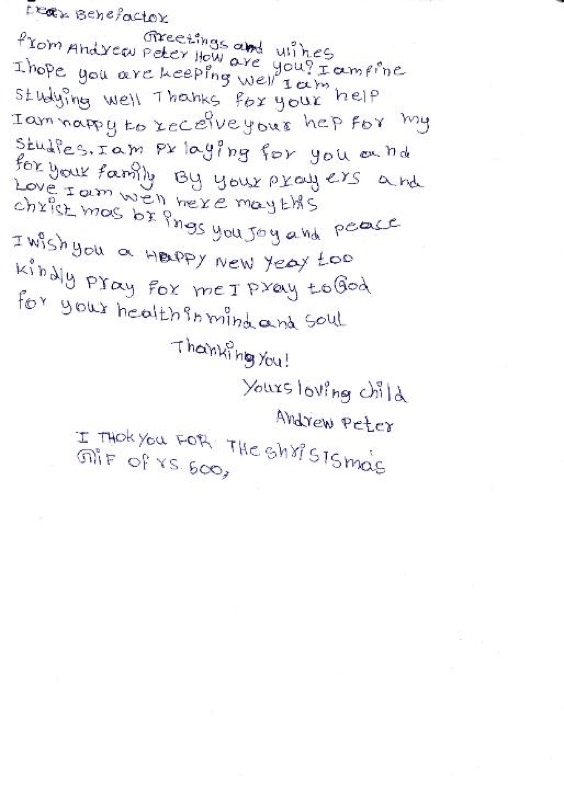 Dear Benefactor
Greetings and wihes
from Andrew Peter How are you? I am fine
I hope you are keeping well I am
studying well Thanks for your help
I am nappy to receive your hep for my
studies. I am pr laying for you and
for your family By your prayers and
Love I am well here may this
christ mas brings you joy and peace
I wish you a HAPPY New Year too
kindly pray for me I pray to God
for your health in mind and soul
Thanking you!
Yours loving child
Andrew Peter
I THOK YOU FOR THe shrisTsmas
GiF OF rs 500,